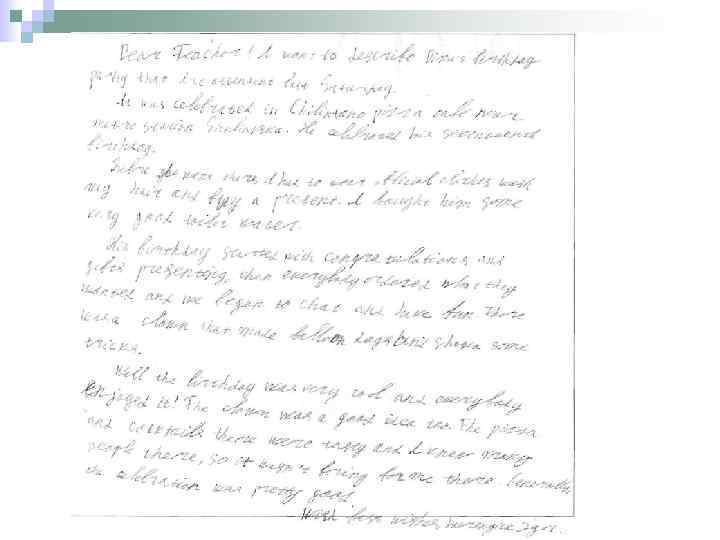 Dear Teacher! I want to describe Dima's birthday
party that I've attended last Saturday.
It was celebrated in Chilintano pizza cafe near
metro station He celebrated his seventeenth
birthday.
Before go near there I had to wear official clothes, wash
my hair and buy a present. I bought him some
very good
His birthday started with congratulations and
gifts presenting, then everybody ordered what they
wanted and we began to chat and have fun. There
was a clown that made balloon dogs and shown some
tricks.
Well the birthday was very cool and everybody
enjoyed it! The clown was a good idea too. The pizza
and cocktails there were tasty and I knew many
people there, so it wasn't boring for me there. Generally,
the celebration was pretty good.
With best wishes,